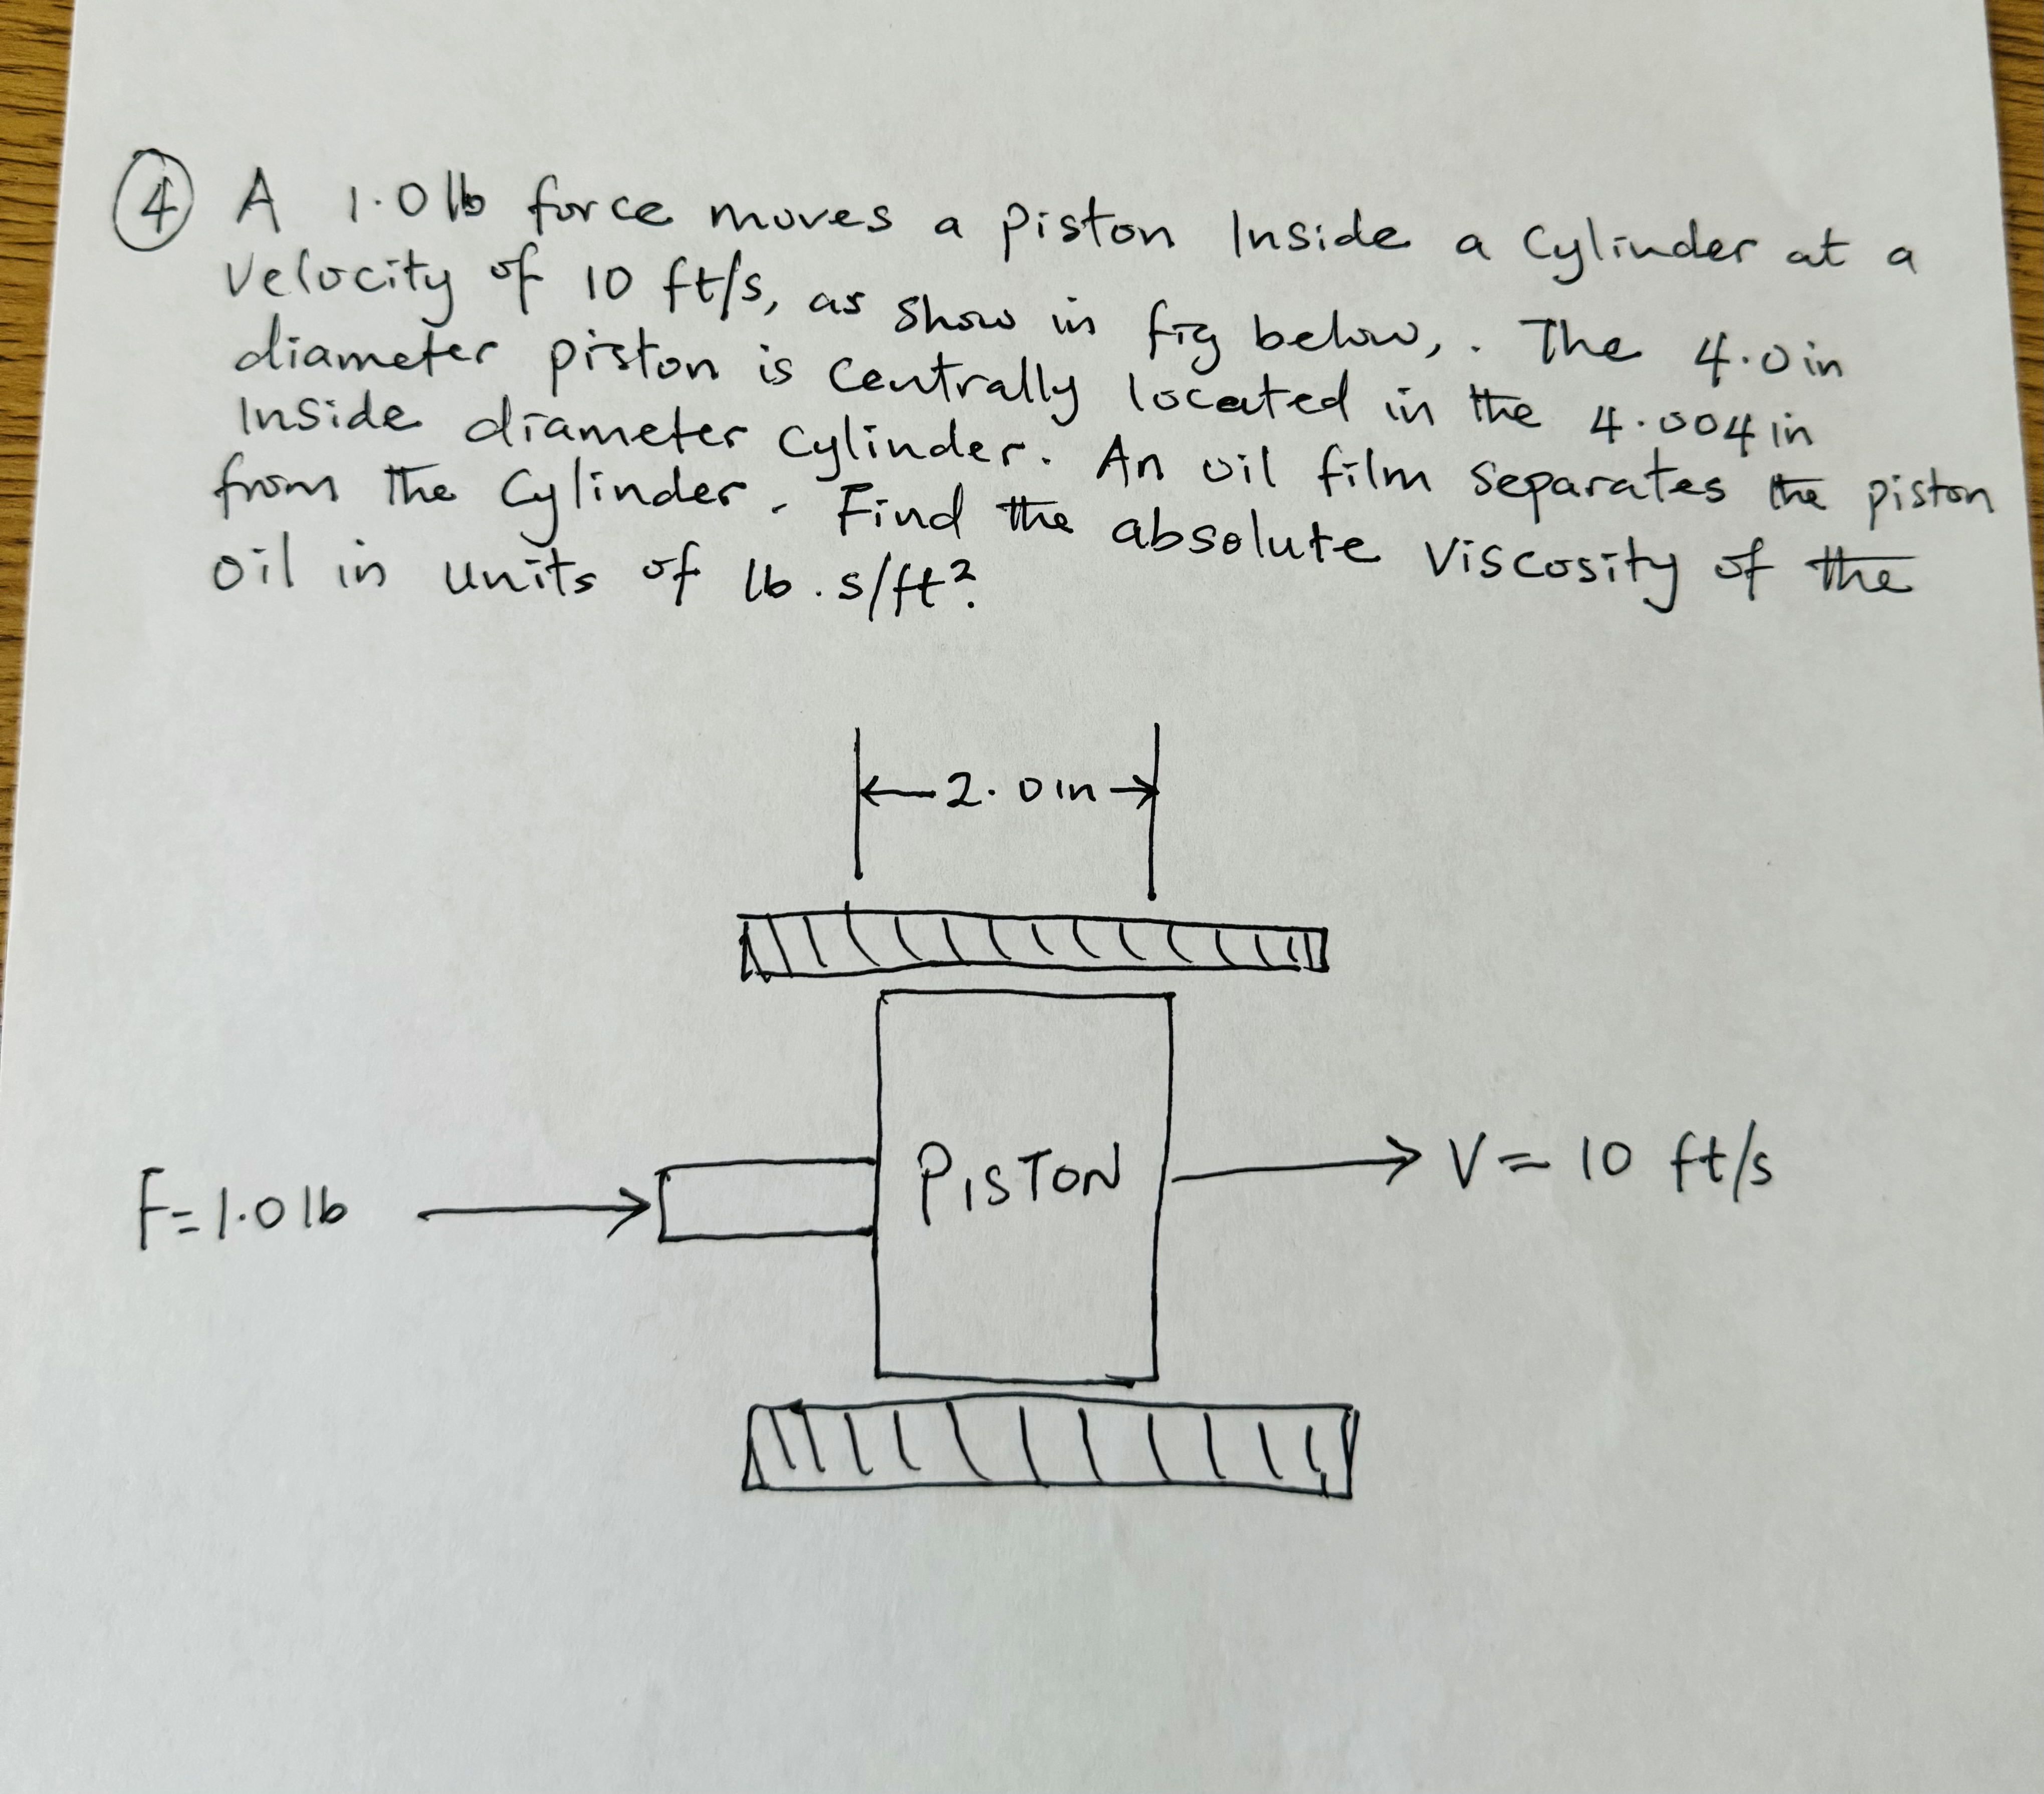 ④ A 1.0 lb force moves a piston Inside a Cylinder at a
Velocity of 10 ft/s, as show in fig below, . The 4.0 in
diameter piston is Centrally located in the 4.004 in
Inside diameter Cylinder. An oil film separates the piston
from the Cylinder. Find the absolute Viscosity of the
oil in units of lb . s/ft²?
2.0 in
F = 1.0 lb
PISTON
V = 10 ft/s